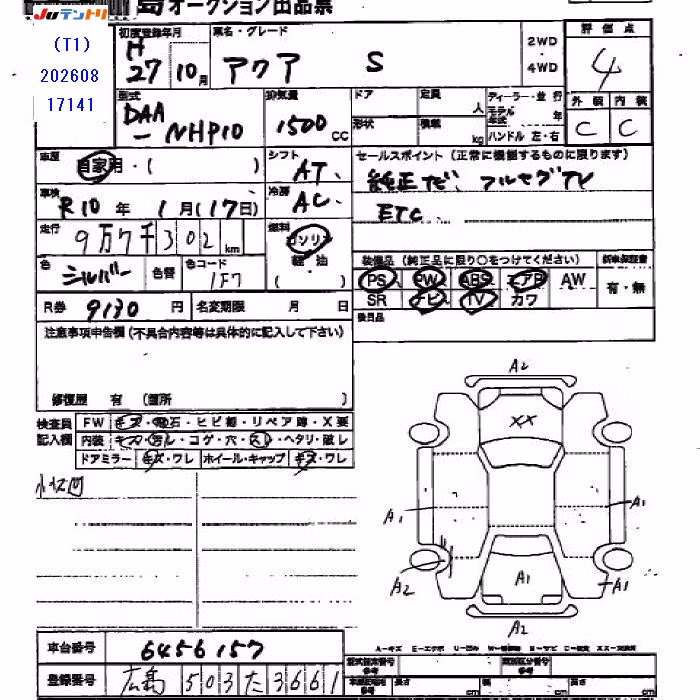 JUテントリ オークション出品票
(T1)
202608
17141
初度登録年月 車名・グレード
H27 10月 アクア S
2WD
・
4WD
評価点
4
型式 排気量 ドア 定員 人 ディーラー・並行
モデル年式 年
外装 内装
DAA-NHP10 1500CC 形状 積載 kg ハンドル 左・右 C C
車歴 自家用・( ) シフト AT セールスポイント(正常に機能するものに限ります)
車検 R10年 1月(17日) 冷房 AC 純正ナビ、フルセグTV
ETC
走行 9万7千302km 燃料 ガソリン
軽・油
( )
装備品(純正品に限り○をつけてください) 新車保証書
色 シルバー 色替 色コード 1F7
PS PW ABS エアB AW 有・無
SR ナビ TV カワ
R券 9130円 名変期限 月 日
後日品
注意事項申告欄(不具合内容等は具体的に記入して下さい)
修復歴 有 (箇所 )
検査員記入欄 FW キズ・飛石・ヒビ割・リペア跡・X要
内装 キズ・汚レ・コゲ・穴・スレ・ヘタリ・破レ
ドアミラー キズ・ワレ ホイール・キャップ キズ・ワレ
小キズ凹
A2
XX
A1 A1
A2 A1 A1
A2
A-キズ E-エクボ U-凹み W-補修跡 S-サビ C-腐食 XX-交換済
車台番号 6456157
型式指定番号 参考 類別区分番号 参考
登録番号 広島 503 た 3661
長さ cm 幅 cm 高さ cm